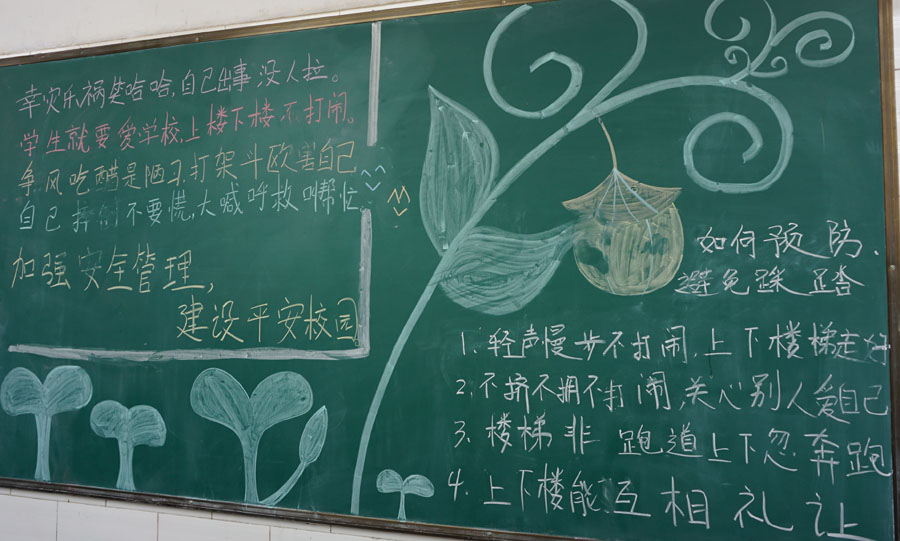 幸灾乐祸笑哈哈,自己出事没人拉。
学生就要爱学校,上楼下楼不打闹。
争风吃醋是陋习,打架斗欧害自己
自己摔倒不要慌,大喊呼救叫帮忙。
加强安全管理,
建设平安校园
如何预防、
避免踩踏
1、轻声慢步不打闹,上下楼梯走好
2、不挤不拥不打闹,关心别人爱自己
3、楼梯非跑道上下忽奔跑
4、上下楼能互相礼让